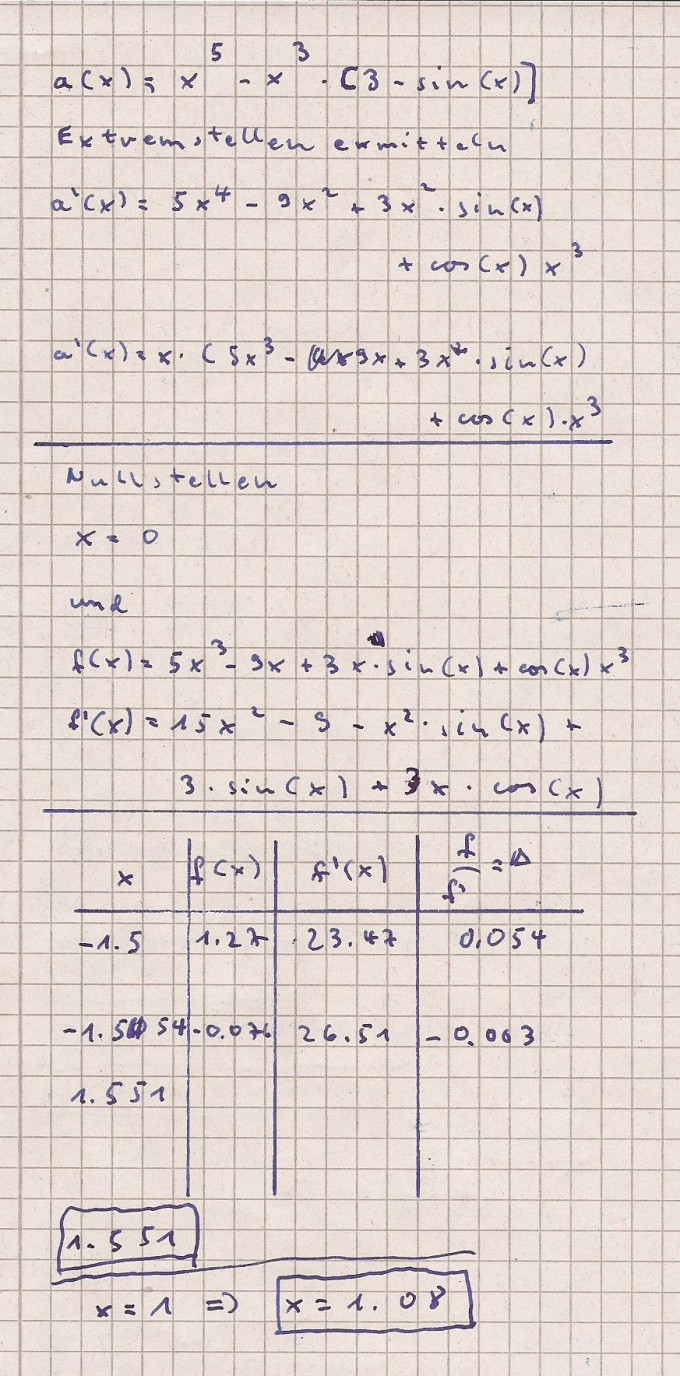 a(x) = x⁵ - x³ · [3 - sin(x)]
Extremstellen ermitteln
a'(x) = 5x⁴ - 9x² + 3x² · sin(x)
+ cos(x) x³
a'(x) = x · (5x³ - 9x + 3x · sin(x)
+ cos(x) · x³
Nullstellen
x = 0
und
f(x) = 5x³ - 9x + 3x · sin(x) + cos(x) x³
f'(x) = 15x² - 9 - x² · sin(x) +
3 · sin(x) + 3x · cos(x)
x f(x) f'(x) f/f' = Δ
-1.5 1.27 23.47 0.054
-1.554 -0.076 26.51 -0.003
1.551
1.551
x = 1 ⇒ x = 1.08